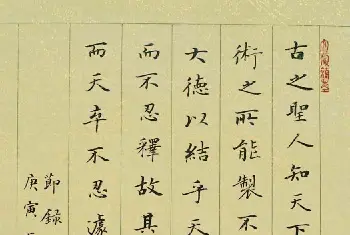 古之聖人知天下
術之所能製不
大德以結乎天
而不忍釋故其
而天卒不忍遽
節錄
庚寅